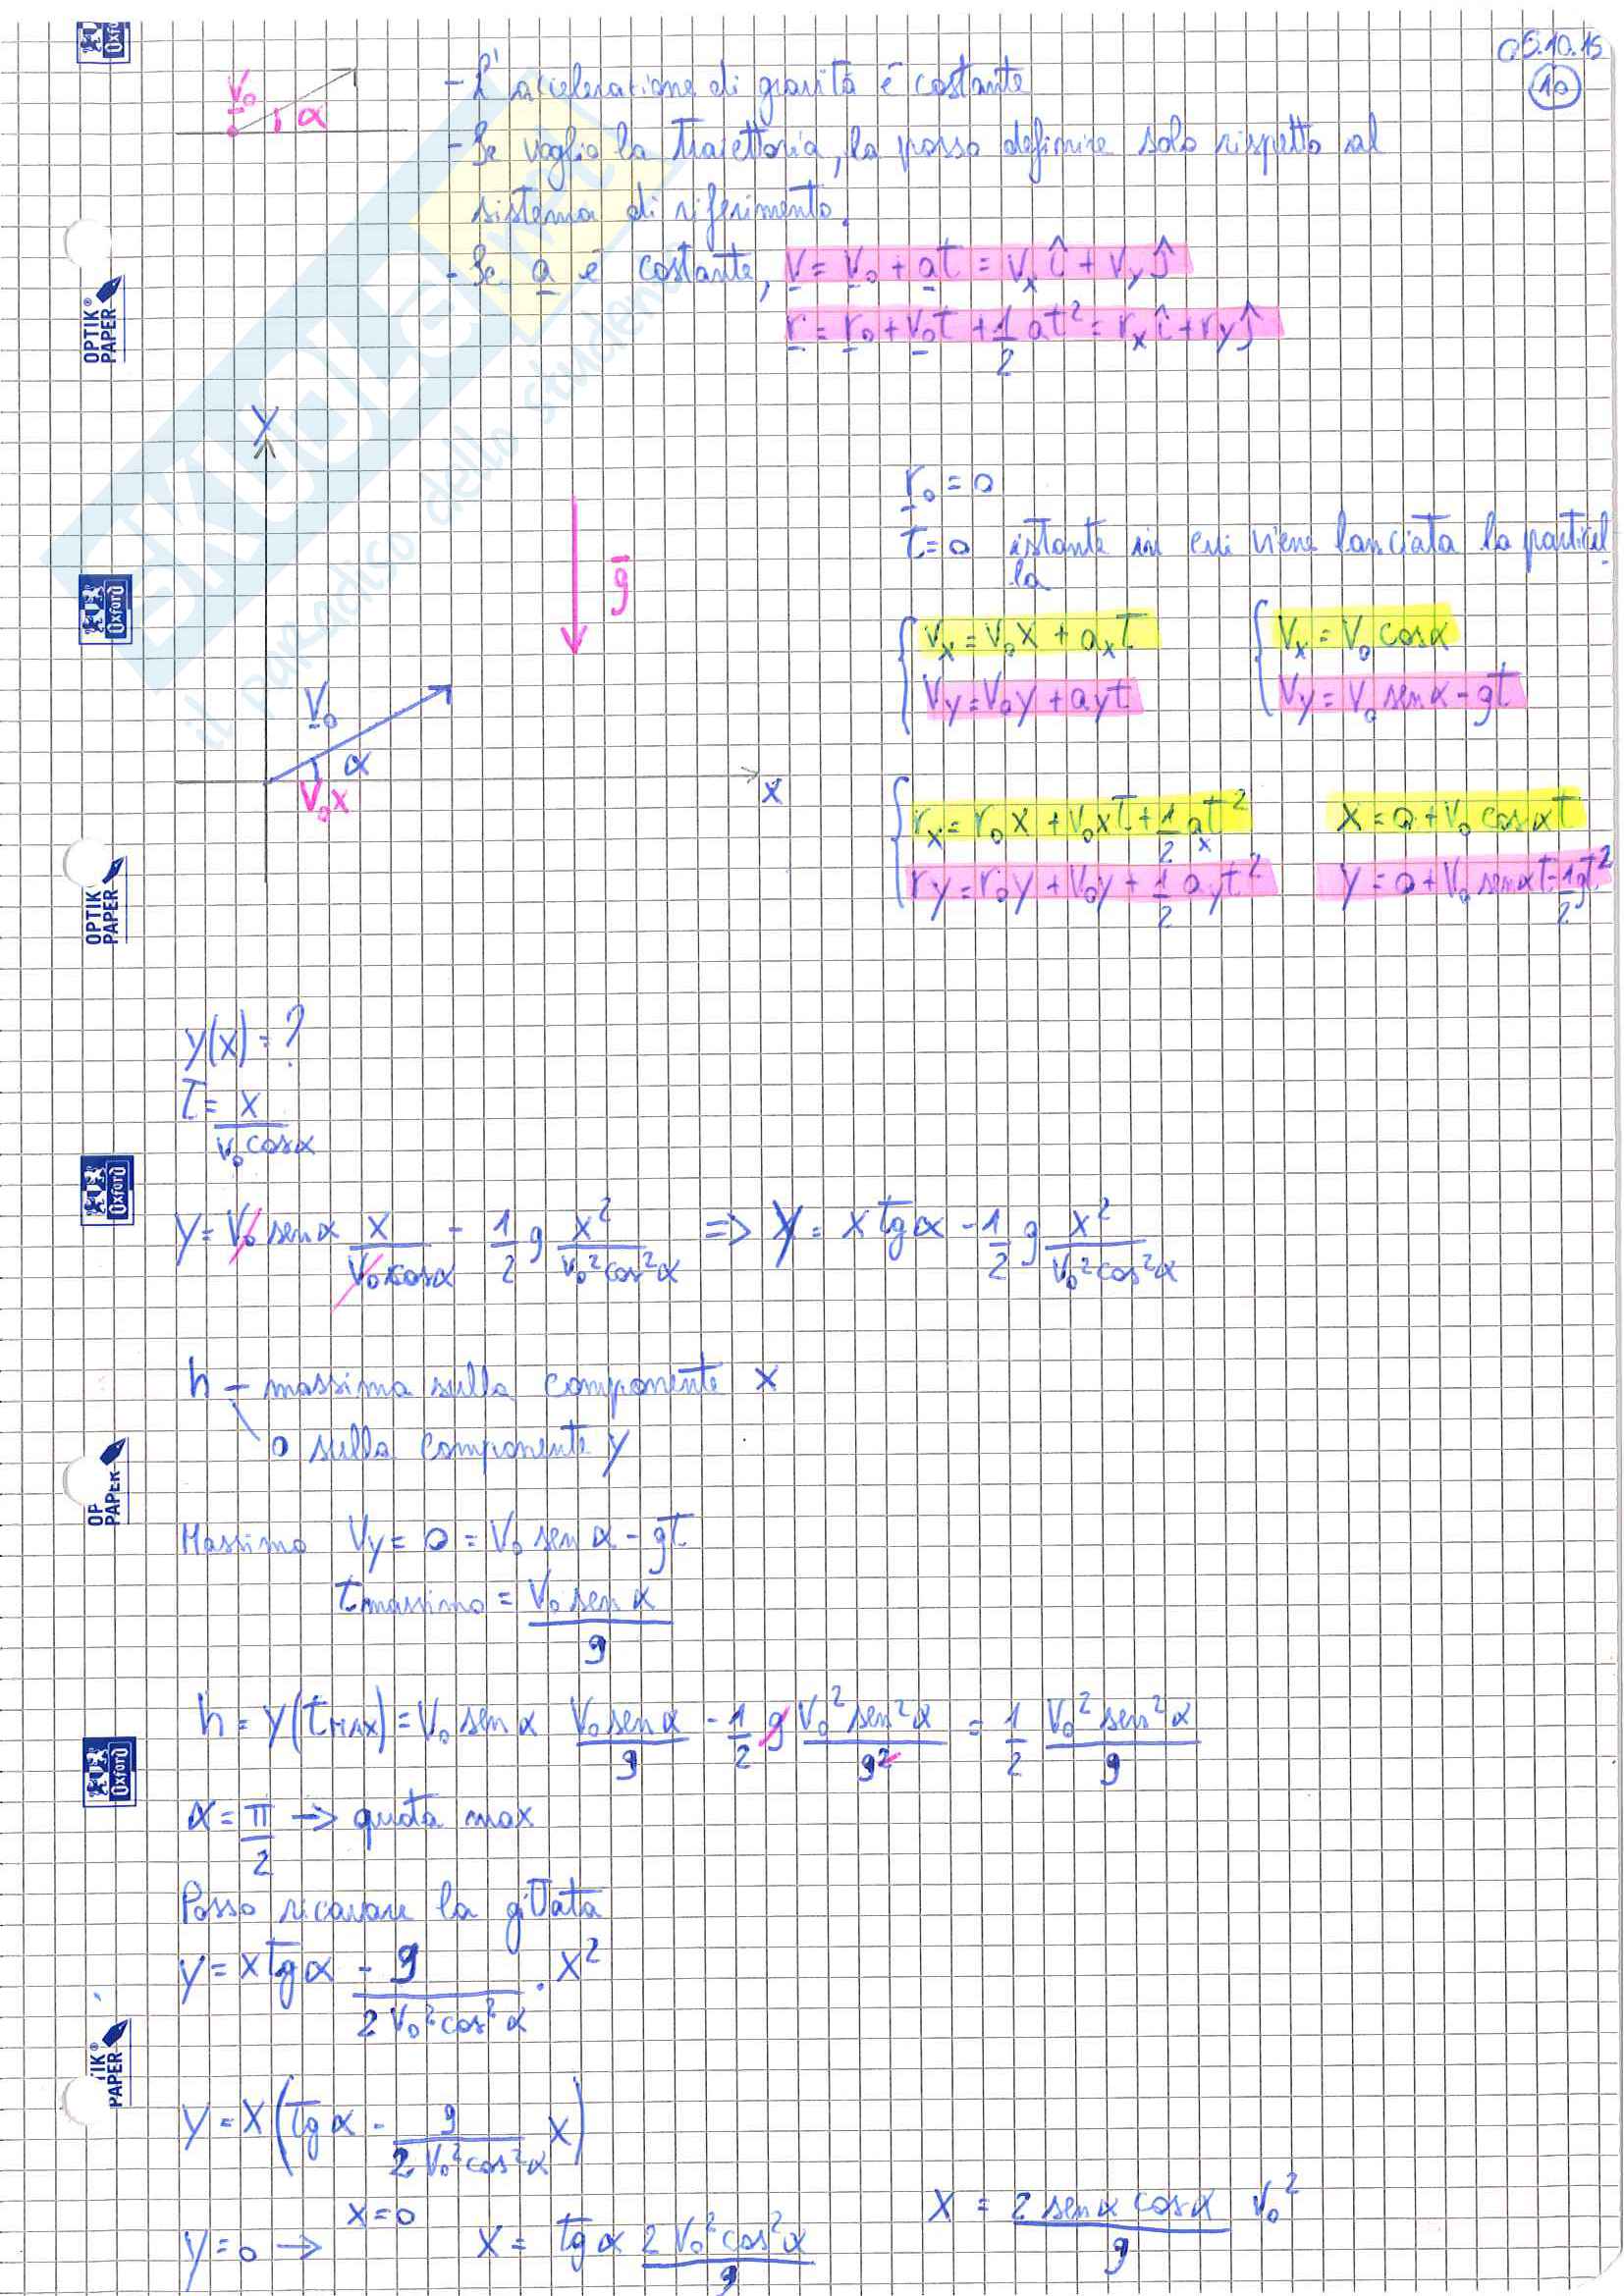 05.10.15
10
V₀
α
- L'accelerazione di gravità è costante
- Se voglio la traiettoria, la posso definire solo rispetto al
sistema di riferimento.
- Se a è costante, v = v₀ + at = vₓ î + v_y ĵ
r = r₀ + v₀t + 1/2 at² = rₓ î + r_y ĵ
SKUOLA
il paradiso dello studente
y
r₀ = 0
t = 0 istante in cui viene lanciata la particel
la
g
{ Vₓ = V₀x + aₓt
V_y = V₀y + ayt
{ Vₓ = V₀ cosα
V_y = V₀ senα - gt
V₀
α
V₀x
x
{ rₓ = r₀x + V₀xt + 1/2 aₓt²
ry = r₀y + V₀y + 1/2 ayt²
x = 0 + V₀ cosαt
y = 0 + V₀ senαt - 1/2 gt²
y(x) = ?
t = x / v₀ cosα
y = V₀ senα x / V₀ cosα - 1/2 g x² / V₀² cos²α => y = x tgα - 1/2 g x² / V₀² cos²α
h - massima sulla componente x
0 sulla componente y
Massimo Vy = 0 = V₀ sen α - gt
t massimo = V₀ sen α / g
h = y(tMAX) = V₀ sen α V₀ sen α / g - 1/2 g V₀² sen² α / g² = 1/2 V₀² sen² α / g
α = π/2 -> quota max
Posso ricavare la gittata
y = x tg α - g / 2 V₀² cos² α · x²
y = x (tg α - g / 2 V₀² cos² α x)
y = 0 -> x = 0
x = tg α 2 V₀² cos² α / g
x = 2 sen α cos α / g V₀²
OPTIK®
PAPER
Oxford
OPTIK
PAPER
Oxford
OP
PAPER
Oxford
TIK®
PAPER
Oxford